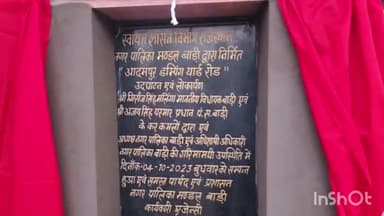 स्वायत्त शासन विभाग राजस्थान
नगर पालिका मण्डल बाड़ी द्वारा निर्मित
" आदमपुर डम्पिंग यार्ड रोड "
उदघाटन एवं लोकार्पण
श्री गिर्राज सिंह मलिंगा माननीय विधायक बाड़ी एवं
श्री अजय सिंह परमार प्रधान पं.स.बाड़ी
के कर कमलों द्वारा एवं
अध्यक्ष नगर पालिका बाड़ी एवं अधिशाषी अधिकारी
नगर पालिका बाड़ी की गरिमामयी उपस्थिति में
दिनांक-04-10-2023 बुधवार को सम्पन्न
हुआ एवं समस्त पार्षद एवं प्रशासन
नगर पालिका मण्डल बाड़ी
कार्यकारी एजेन्सी
InShot